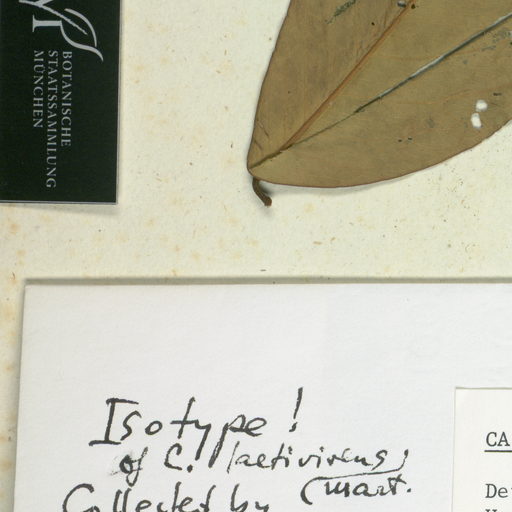 BOTANISCHE
STAATSSAMMLUNG
MÜNCHEN
Isotype!
of C. laetivirens;
Mart.
Collected by
CA
De